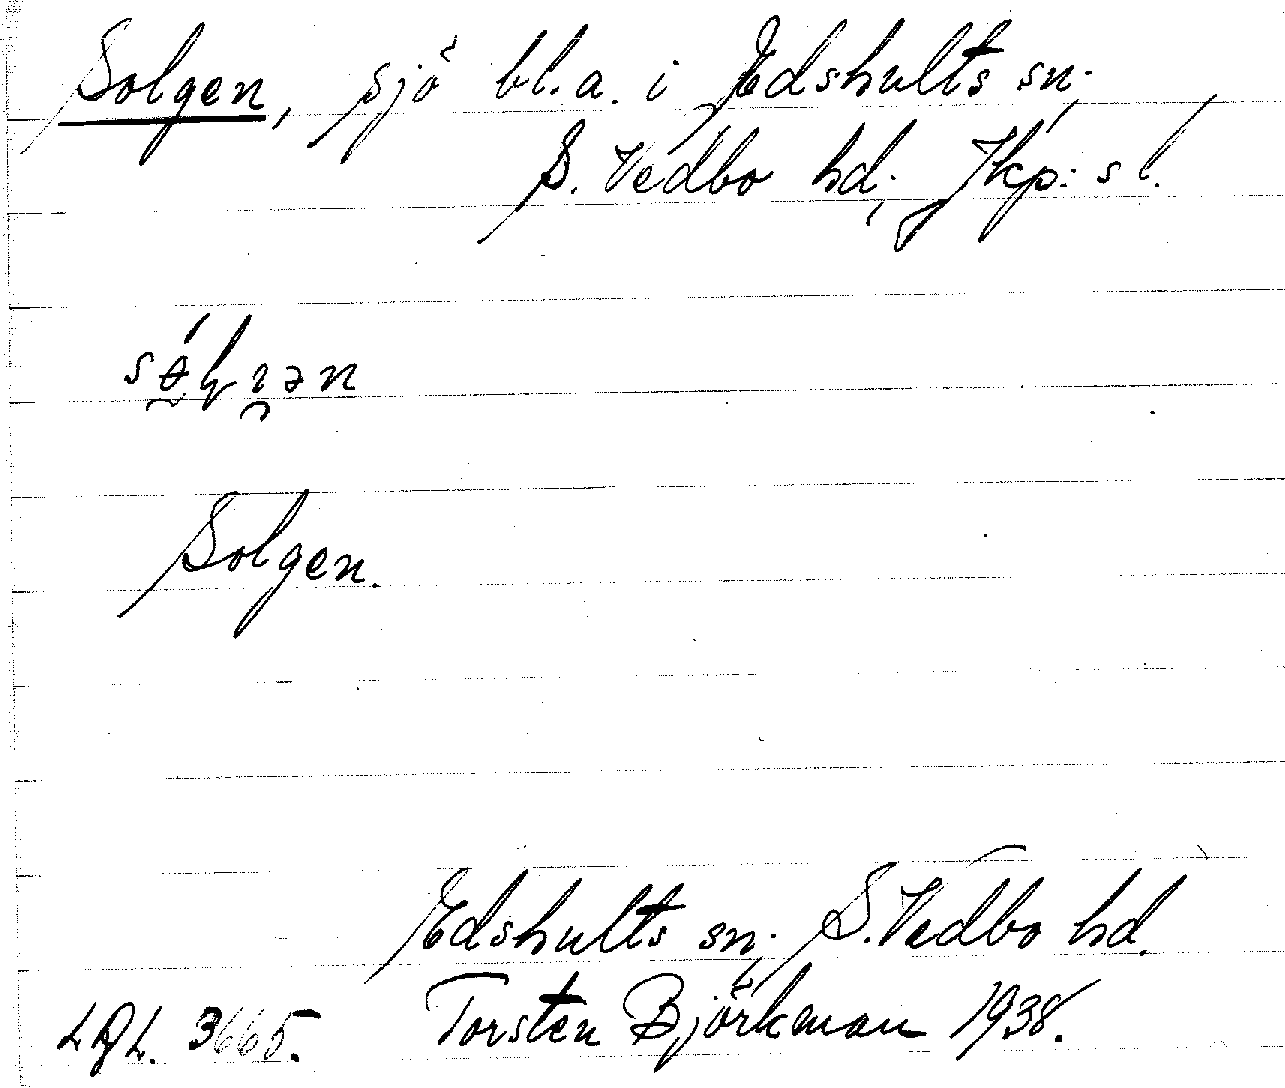 Solgen, sjö bl.a. i Edshults sn.,
S. Vedbo hd., Jkp:s l.
Solgen.
Edshults sn., S. Vedbo hd.
3665. Torsten Björkman 1938.